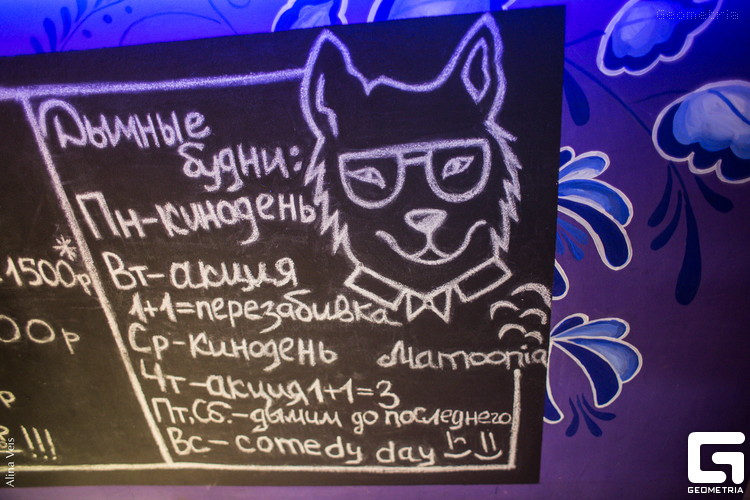 Geometria
Дымные
будни:
Пн-кинодень
Вт-акция
1+1=перезабивка
Ср-кинодень
Чт-акция 1+1=3
Пт, Сб.-дымим до последнего
Вс-comedy day
Mamoonia
*
1500р
00р
р
р !!!
Alina Veis
G
GEOMETRIA